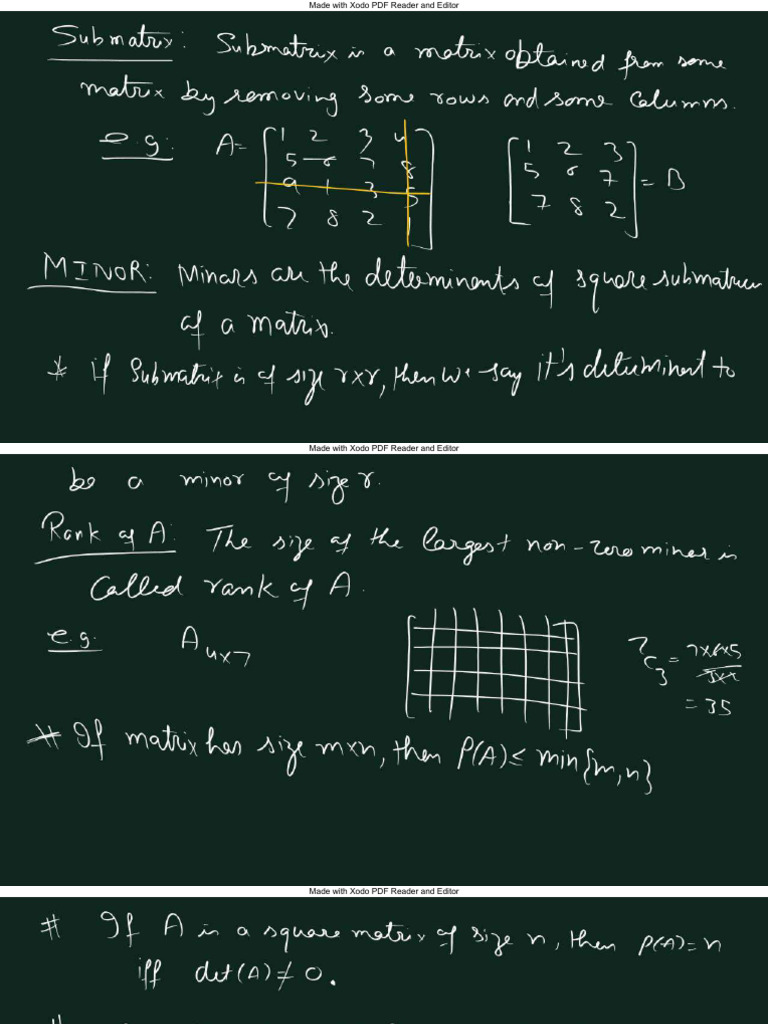 Made with Xodo PDF Reader and Editor
Submatrix: Submatrix is a matrix obtained from some
matrix by removing some rows and some columns.
e.g: A= [1 2 3 4
5 6 7 8
9 1 3 5
7 8 2 1]
[1 2 3
5 6 7
7 8 2] = B
MINOR: Minors are the determinents of square submatrices
of a matrix.
* if submatrix is of size r×r, then we say it's determinent to
Made with Xodo PDF Reader and Editor
be a minor of size r.
Rank of A: The size of the largest non-zero minor is
called rank of A.
e.g. A4×7
7C3 = 7×6×5
3×2
= 35
* If matrix has size m×n, then ρ(A) ≤ min{m,n}
Made with Xodo PDF Reader and Editor
# If A is a square matrix of size n, then ρ(A)=n
iff det(A) ≠ 0.